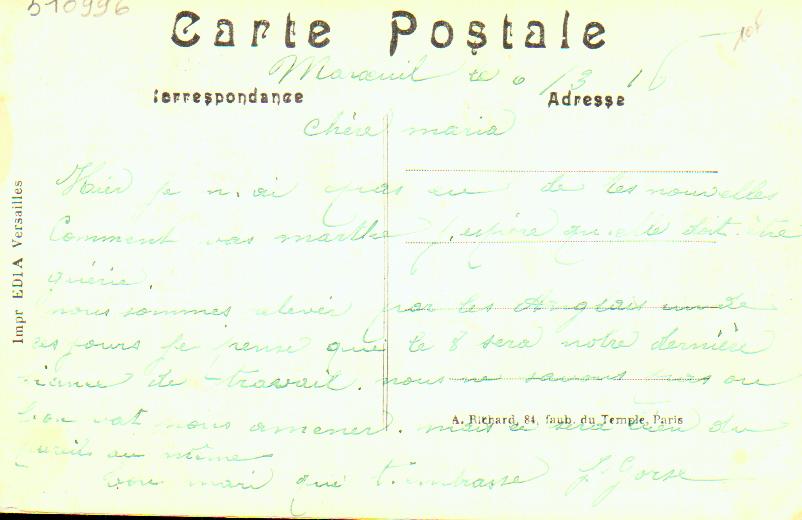 510996
Carte Postale
Mareuil le 6/3 16
Correspondance
Adresse
Chère maria
Hier je n.ai pas eu de tes nouvelles
Comment vas marthe j.espère qu.elle doit être
guérie.
nous sommes relever par les Anglais un de
ces jours je pense que le 8 sera notre dernière
de travail. nous ne savons pas ou
l.on vat nous amener. mais ce sera
ou même
ton mari qui t.embrasse J. Gorse
Impr EDIA Versailles
A. Richard, 84, faub. du Temple, Paris